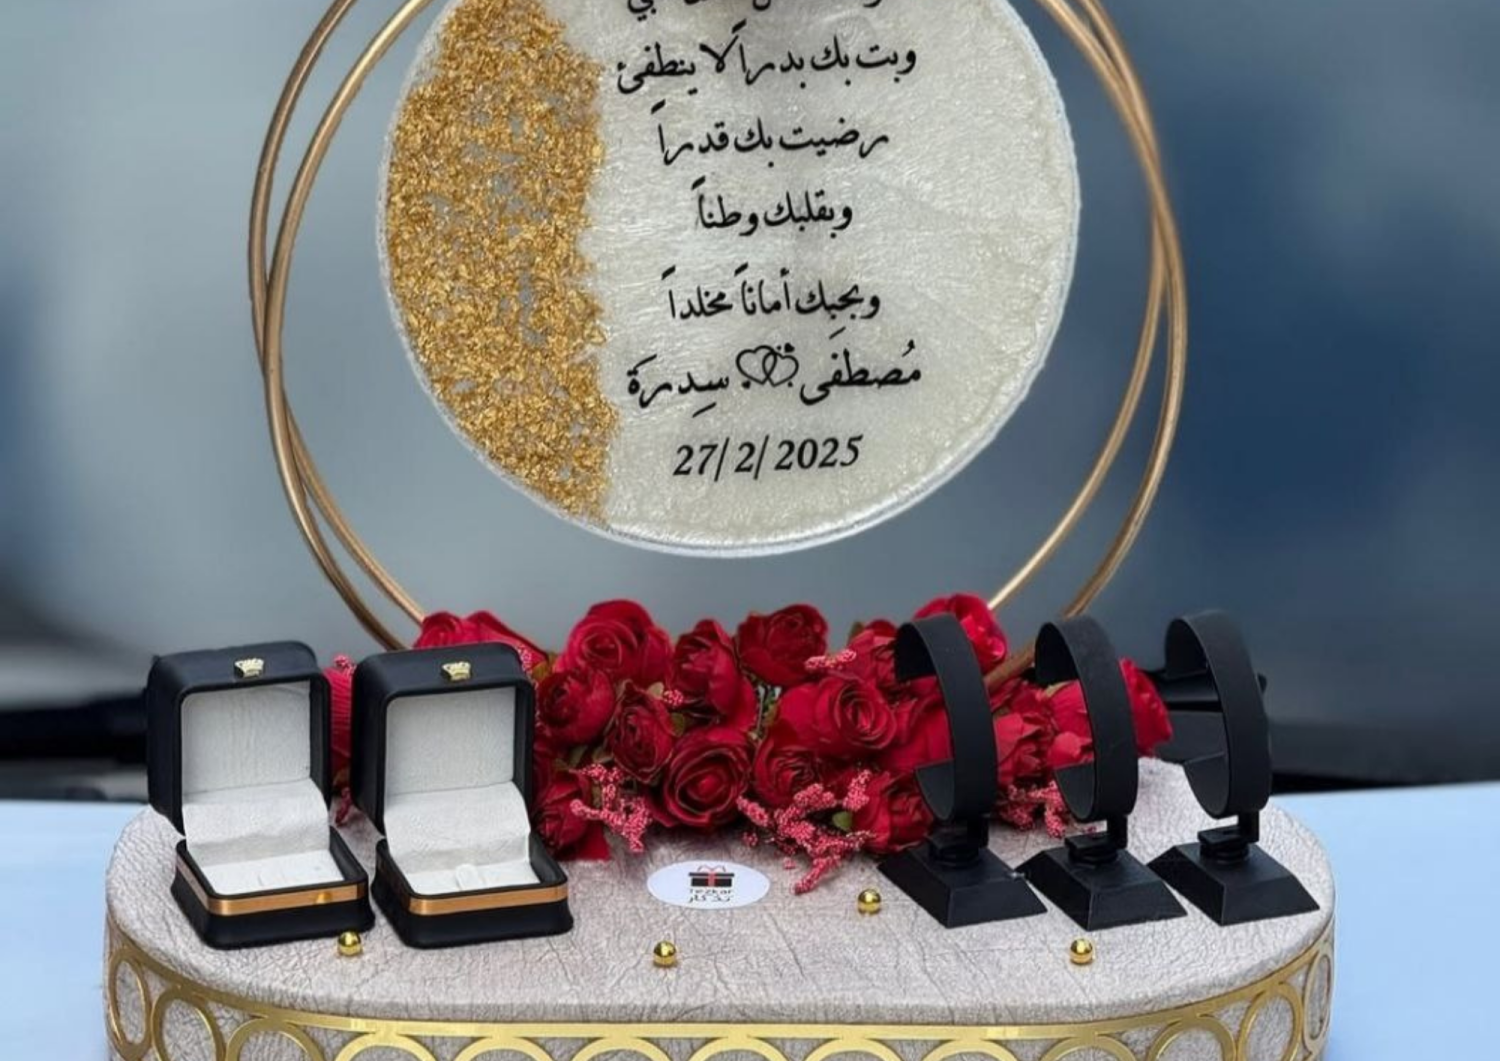 وبت بك بدراً لا ينطفئ
رضيت بك قدراً
وبقلبك وطناً
وبحبِك أماناً مخلداً
مُصطفَى سِدرَة
27/2/2025
Tezkar
تذكار